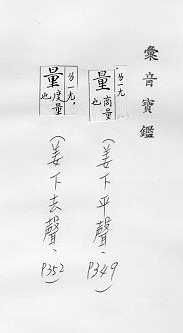 彙音寶鑑
ㄌㄧㄤ
量 商量也
(姜下平聲、P349)
ㄌㄧㄤ
量 度量也
(姜下去聲、P352)